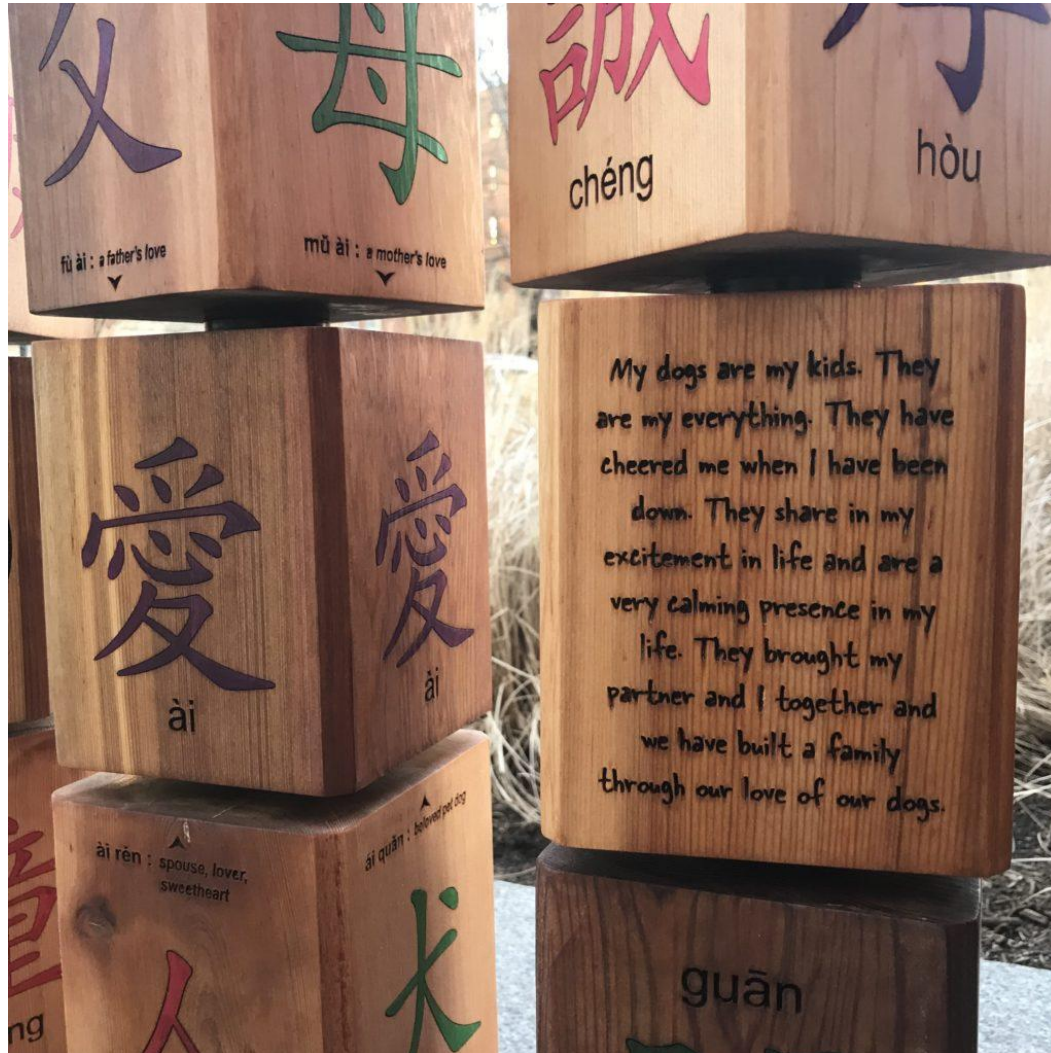 父
母
fù ài : a father's love
mŭ ài : a mother's love
愛
愛
ài
ài
ài rén : spouse, lover,
sweetheart
ài quăn : beloved pet dog
人
犬
ng
誠
chéng
hòu
My dogs are my kids. They
are my everything. They have
cheered me when I have been
down. They share in my
excitement in life and are a
very calming presence in my
life. They brought my
partner and I together and
we have built a family
through our love of our dogs.
guān